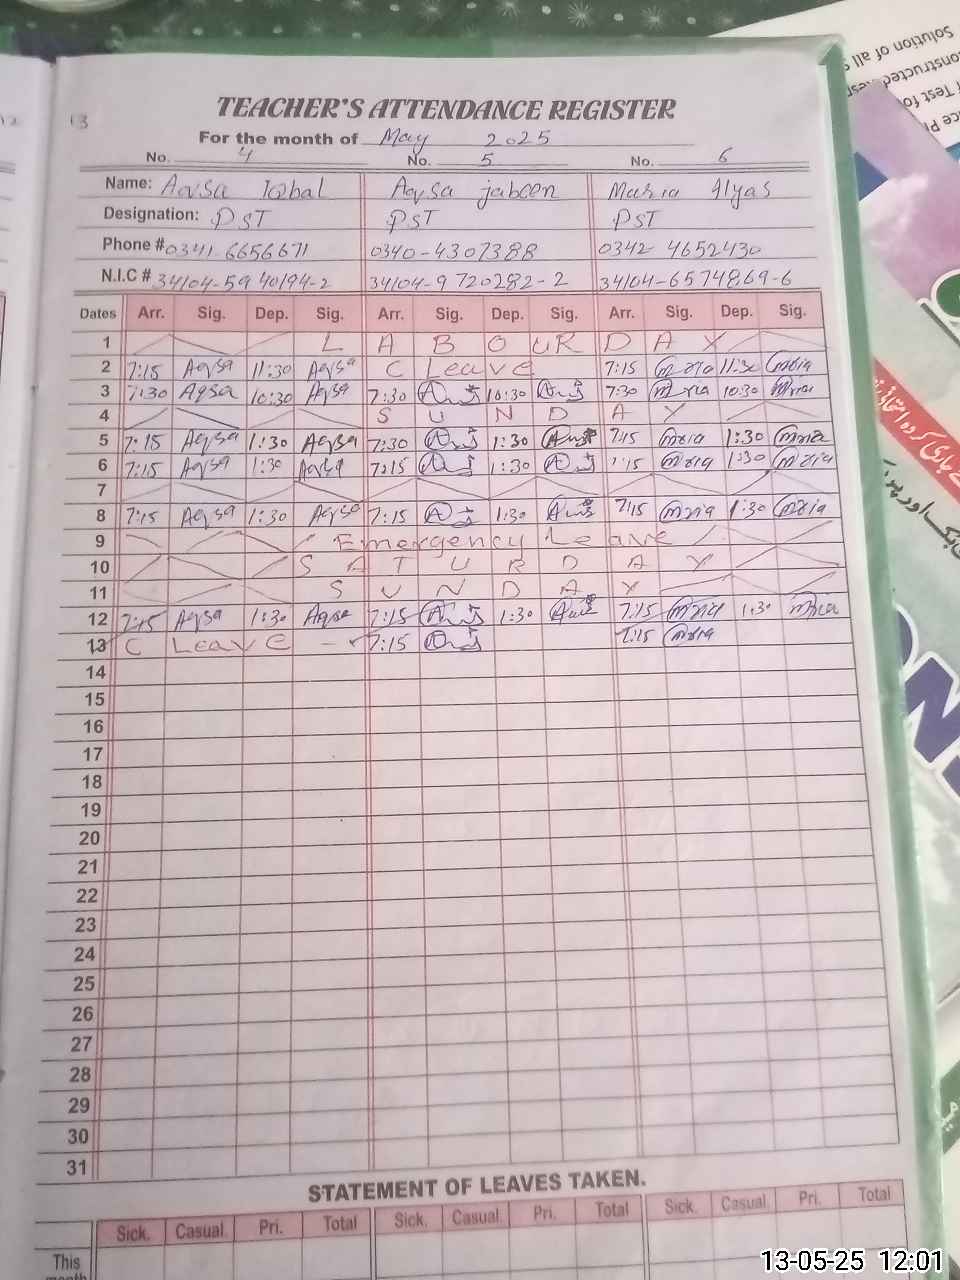 13
TEACHER'S ATTENDANCE REGISTER
For the month of May 2025
No. 4 No. 5 No. 6
Name: Aqsa Iqbal Aqsa jabeen Maria Ilyas
Designation: PST PST PST
Phone # 0341-6656671 0340-4307388 0342 4652430
N.I.C # 34104-5940194-2 34104-9720282-2 34104-6574869-6
Dates Arr. Sig. Dep. Sig. Arr. Sig. Dep. Sig. Arr. Sig. Dep. Sig.
1 LABOUR DAY
2 7:15 Aqsa 11:30 Aqsa C Leave 7:15 maria 11:30 maria
3 7:30 Aqsa 10:30 Aqsa 7:30 10:30 7:30 maria 10:30 maria
4 SUNDAY
5 7:15 Aqsa 1:30 Aqsa 7:30 1:30 7:15 maria 1:30 maria
6 7:15 Aqsa 1:30 Aqsa 7:15 1:30 7:15 maria 1:30 maria
7
8 7:15 Aqsa 1:30 Aqsa 7:15 1:30 7:15 maria 1:30 maria
9 Emergency Leave
10 SATURDAY
11 SUNDAY
12 7:15 Aqsa 1:30 Aqsa 7:15 1:30 7:15 maria 1:30 maria
13 C Leave 7:15 7:15 maria
14
15
16
17
18
19
20
21
22
23
24
25
26
27
28
29
30
31
STATEMENT OF LEAVES TAKEN.
Sick. Casual Pri. Total Sick. Casual Pri. Total Sick. Casual Pri. Total
This
month
Solution of all
13-05-25 12:01